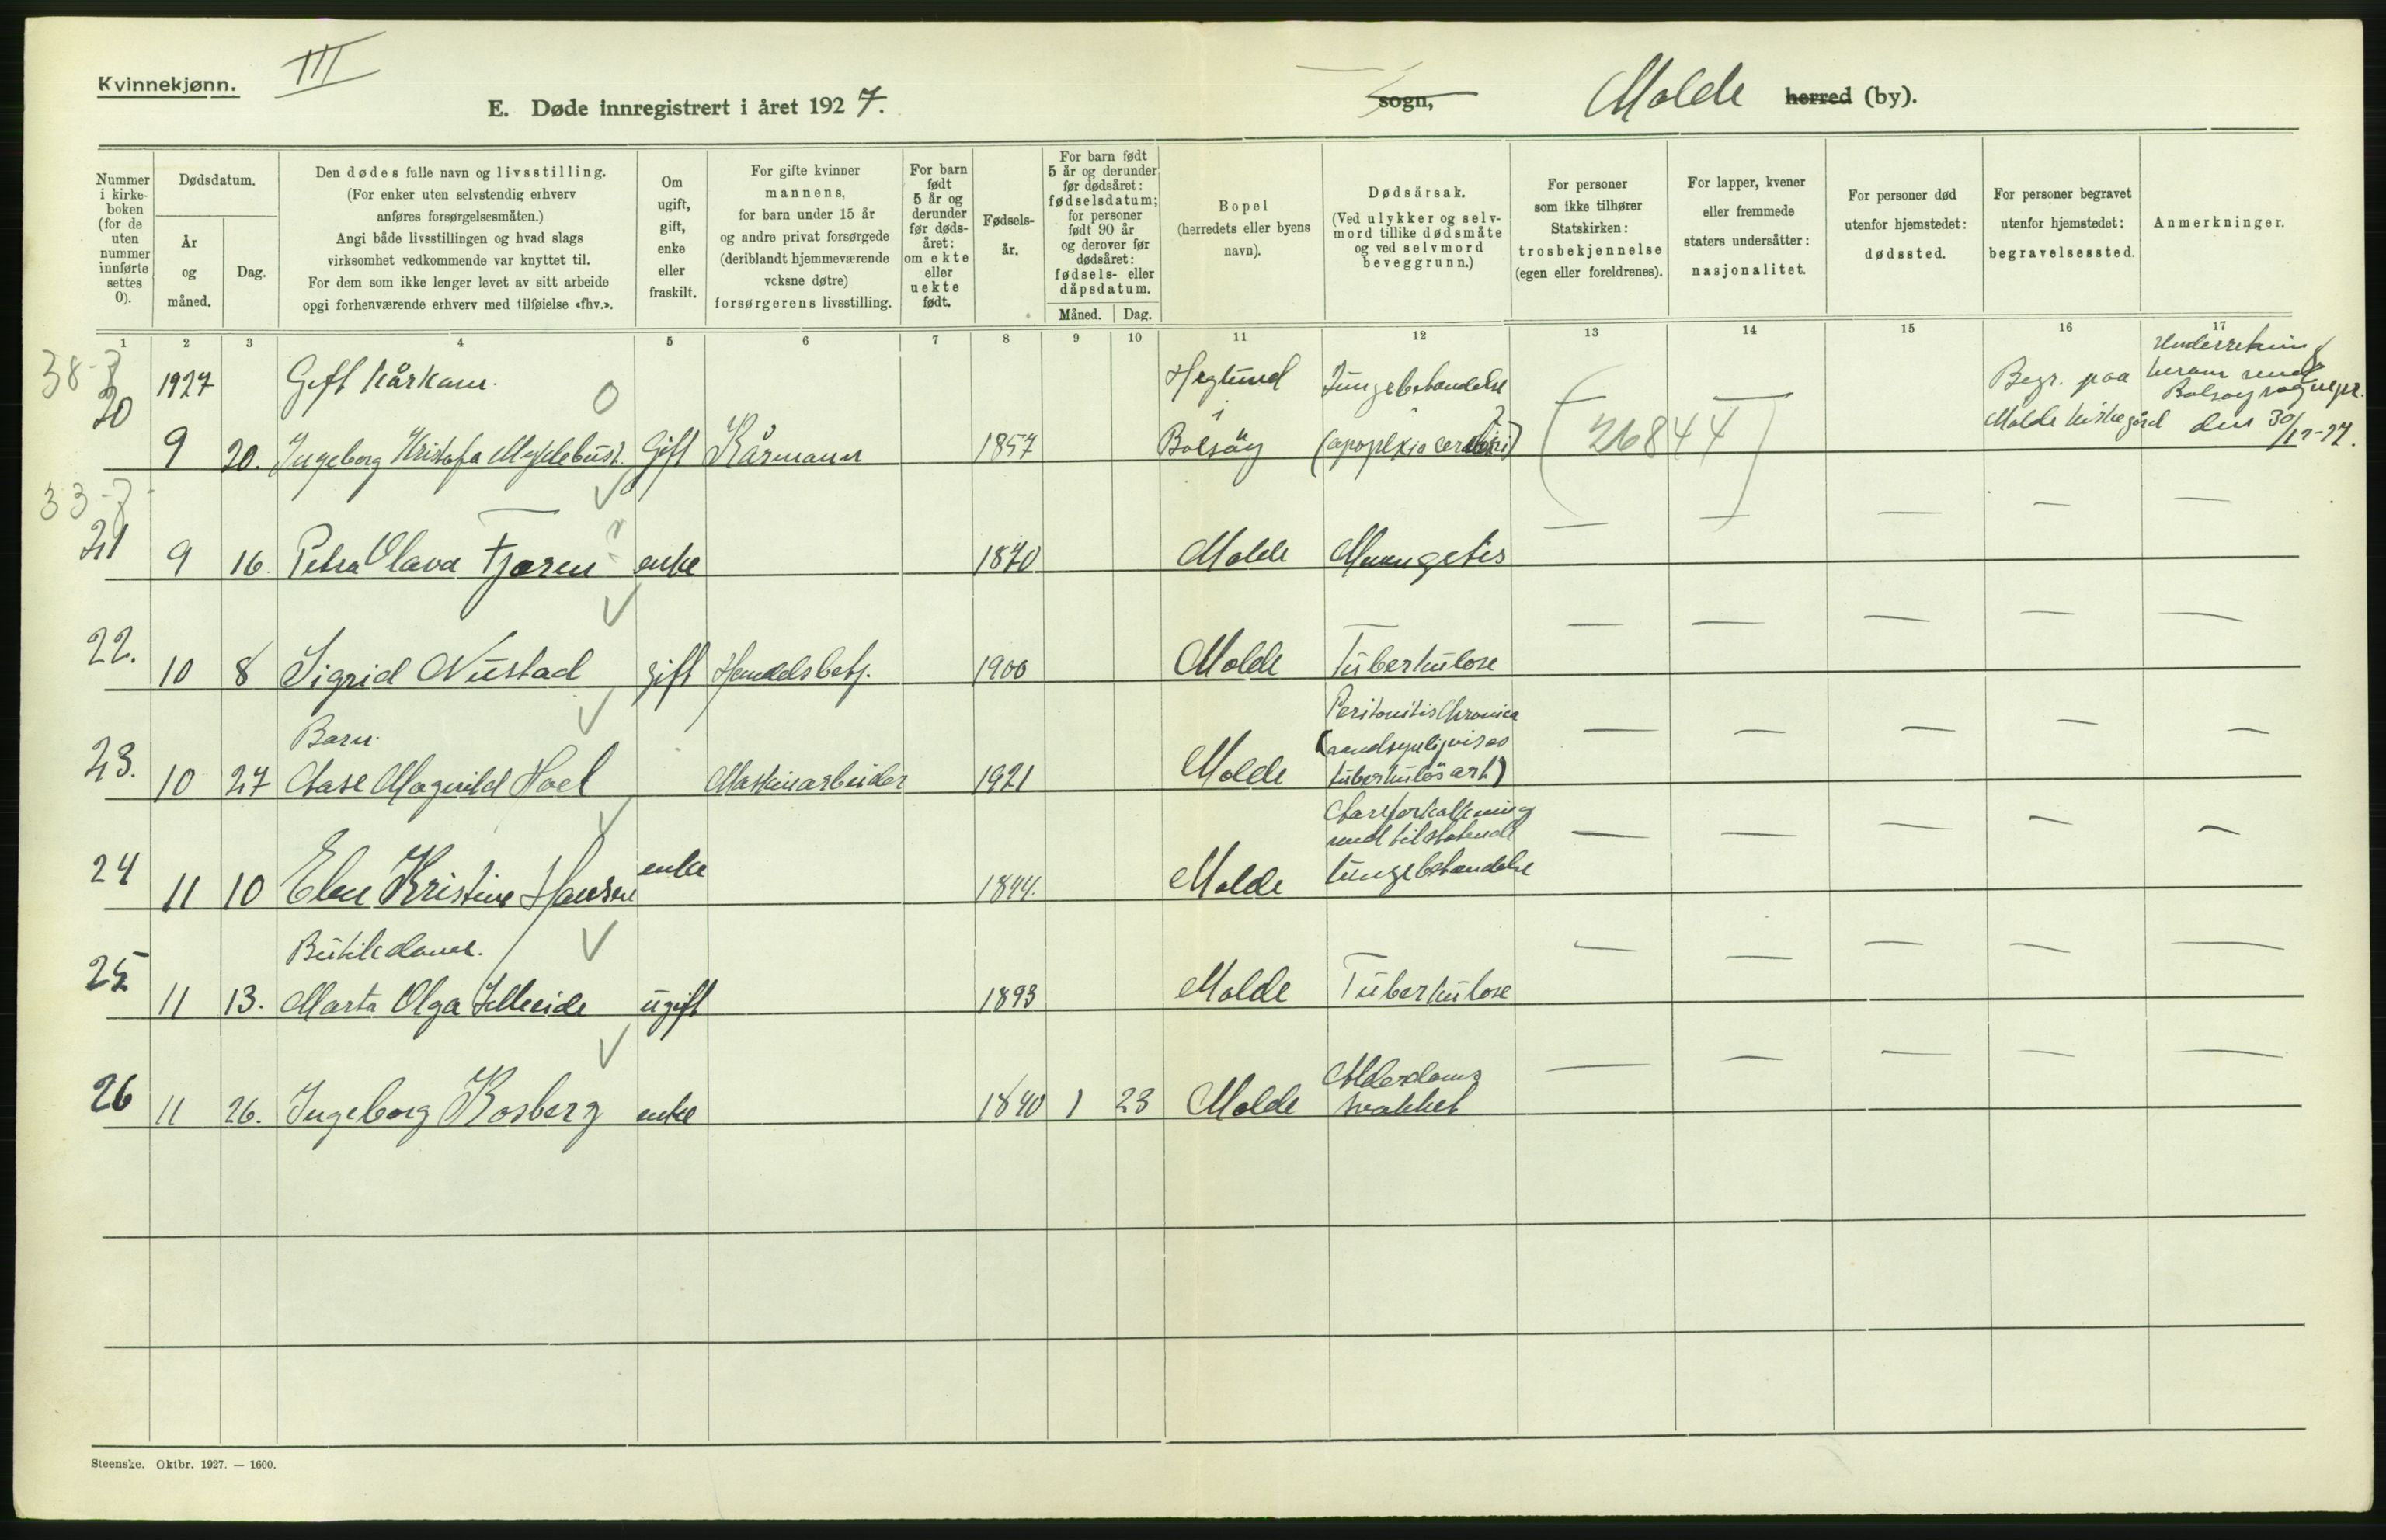 Kvinnekjønn.
III
E. Døde innregistrert i året 1927.
sogn,
Molde herred (by).
Nummer i kirke-boken (for de uten nummer innførte settes 0).
Dødsdatum.
År og måned.
Dag.
Den dødes fulle navn og livsstilling.
(For enker uten selvstendig erhverv
anføres forsørgelsesmåten.)
Angi både livsstillingen og hvad slags
virksomhet vedkommende var knyttet til.
For dem som ikke lenger levet av sitt arbeide
opgi forhenværende erhverv med tilføielse «fhv.».
Om ugift, gift, enke eller fraskilt.
For gifte kvinner
mannens,
for barn under 15 år
og andre privat forsørgede
(deriblandt hjemmeværende
vcksne døtre)
forsørgerens livsstilling.
For barn født 5 år og derunder før døds-året: om ekte eller uekte født.
Fødsels-år.
For barn født
5 år og derunder
før dødsåret:
fødselsdatum;
for personer
født 90 år
og derover før
dødsåret:
fødsels- eller
dåpsdatum.
Måned. Dag.
Bopel
(herredets eller byens
navn).
Dødsårsak.
(Ved ulykker og selv-
mord tillike dødsmåte
og ved selvmord
beveggrunn.)
For personer
som ikke tilhører
Statskirken:
trosbekjennelse
(egen eller foreldrenes).
For lapper, kvener
eller fremmede
staters undersåtter:
nasjonalitet.
For personer død
utenfor hjemstedet:
dødssted.
For personer begravet
utenfor hjemstedet:
begravelsessted.
Anmerkninger.
1 2 3 4 5 6 7 8 9 10 11 12 13 14 15 16 17
38-7
20 1927 Gift kårkam. 0 Heglund Lungebetændelse Begr. paa
9 20. Ingeborg Kristofa Myklebust. Gift Kårmann 1857 i Bolsöy (apoplexia cerebri) ? (26844) Molde kirkegård den 30/12-27.
33-7
21 9 16. Petra Olava Fjæren ? enke 1840 Molde —
22. 10 8 Sigrid Nustad gift Handelsbetj. 1900 Molde Tuberkulose
23. Barn. Peritonitis Chronica
10 27 Aase Magnild Hoel Maskinarbeider 1921 Molde (sandsynligvis av
tuberkuløs art)
24 Aareforkalkning
med tilstøtende
11 10 Elen Kristine Hansen enke 1844. Molde lungebetændelse
25 Butikdame.
11 13. Marta Olga ugift 1893 Molde Tuberkulose
26 11 26. Ingeborg Rosberg enke 1840 1 23 Molde Alderdoms
svakhet
Steenske. Oktbr. 1927. — 1600.